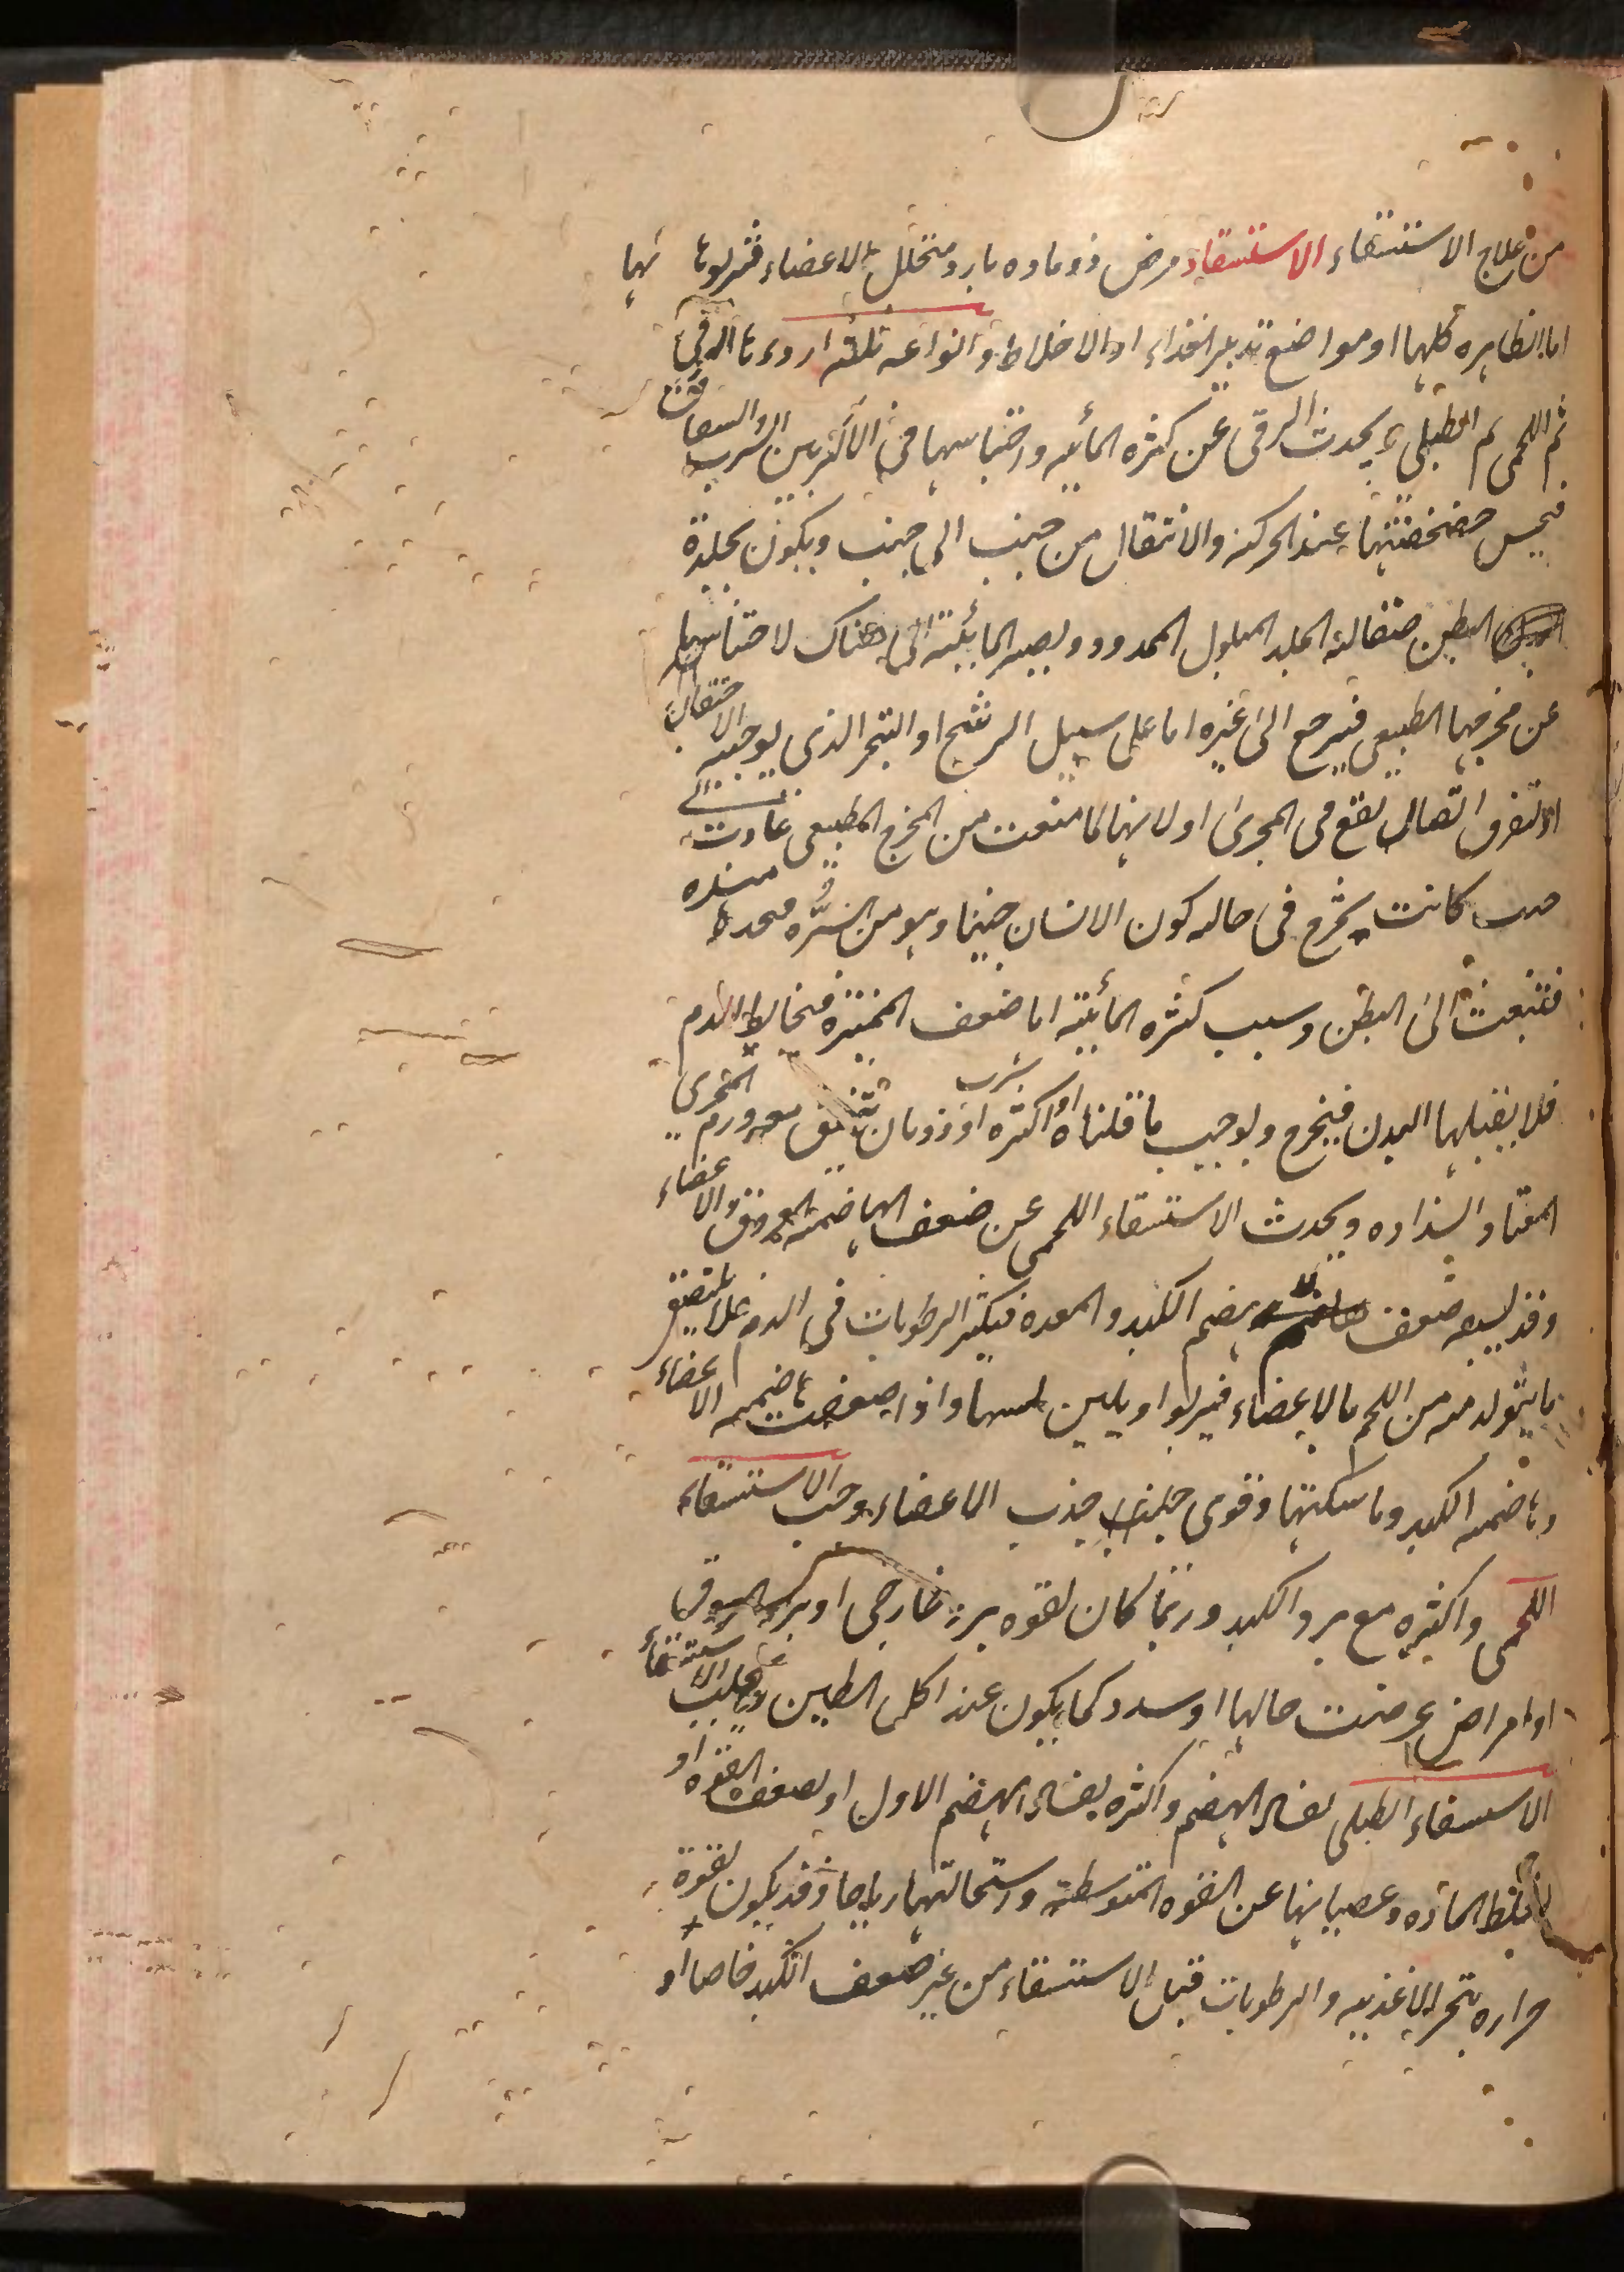 من علاج الاستسقاء الاستسقاء مرض ذو ماده بارد متخلل الاعضاء فتربو بها
اما الظاهره كلها او مواضع تدبير الغذاء او الاخلاط وانواعه ثلثه اردءها الزقى
ثم اللحمى ثم الطبلى ويحدث الزقى عن كثره المائيه واحتباسها فى الاكثر بين الثرب والصفاق
فيحس خضخضتها عند الحركه والانتقال من جنب الى جنب ويكون بجلدة
البطن صقالة الجلد المبلول الممدود ويصير المائية الى هناك لاحتباسها
عن مخرجها الطبيعى فيرجع الى غيره اما على سبيل الرشح او التبخر الذى يوجبه الاحتقان
او لتفرق اتصال يقع فى المجرى او لانها لما منعت من المخرج الطبيعى عادت
كانت تخرج فى حاله كون الانسان جنينا وهو من السره
فتنبعث الى البطن وسبب كثره المائية اما ضعف المميزة فيخالط الدم
فلا يقبلها البدن فيخرج ويوجب ما قلناه او اكثره شرب او ذوبان معه ورم المجرى
المعتاد انسداده ويحدث الاستسقاء اللحمى عن ضعف الهاضمة العروق والاعضاء
وقد يسبقه ضعف هضم الكبد والمعده فيكثر الرطوبات فى الدم فلا يلتصق
ما يتولد منه من اللحم بالاعضاء فيربوا ويلين واذا ضعفت هاضمه الاعضاء
وهاضمه الكبد وماسكتها وقوى جذب الاعضاء وجب الاستسقاء
اللحمى واكثره مع برد الكبد وربما كان لقوه برد خارجى او برد العروق
او امراض عرضت حالها او سدد كما يكون عند اكل الطين وسبب الاستسقاء
الاستسقاء الطبلى فساد الهضم واكثره لفساد الهضم الاول او لضعف القوه او
لغلظ الماده وعصيانها عن القوه المتوسطه واستحالتها رياحا وقد يكون لقوة
حراره تبخر الاغذيه والرطوبات قبل الاستسقاء من غير ضعف الكبد خاصا او